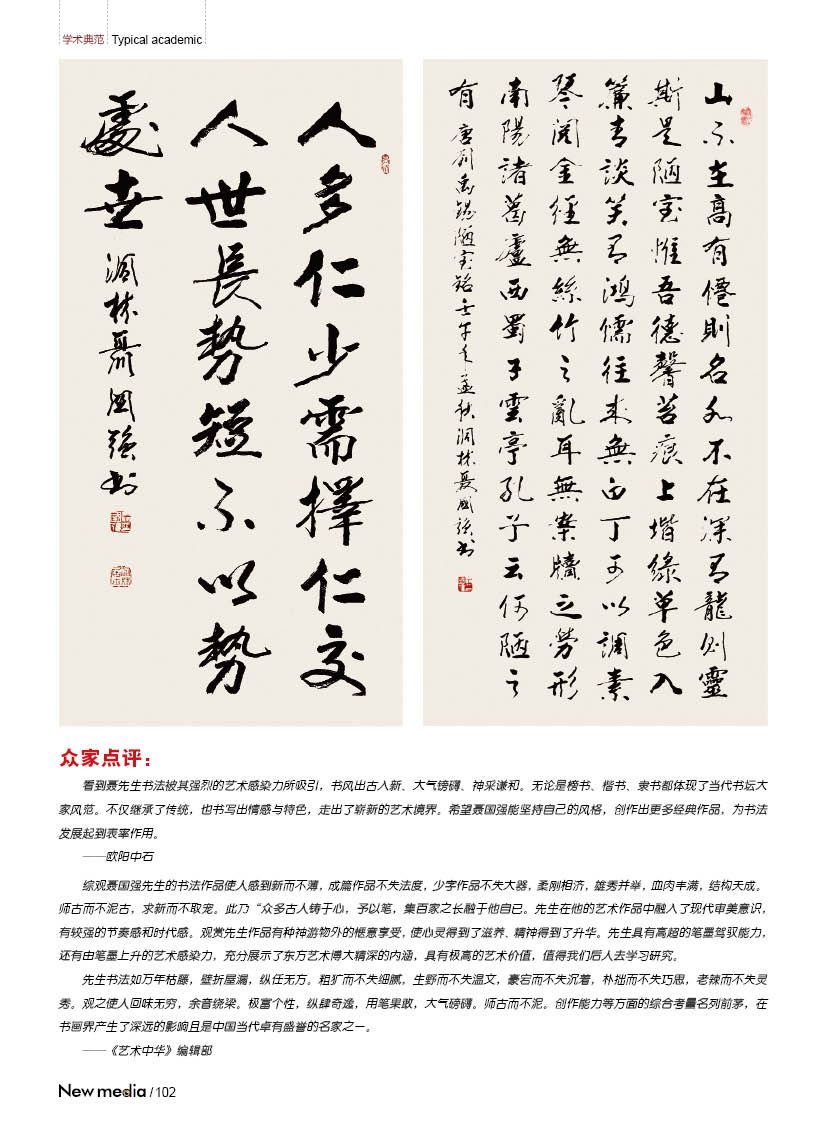 学术典范 Typical academic
人多仁少需擇仁交
人世長勢短不以勢
處世 涧林聶國強书
山不在高有僊則名水不在深有龍則靈
斯是陋室惟吾德馨苔痕上堦綠草色入
簾青談笑有鴻儒往來無白丁可以調素
琴閱金經無絲竹之亂耳無案牘之勞形
南陽諸葛廬西蜀子雲亭孔子云何陋之
有 唐刘禹锡陋室铭壬午年孟秋涧林聂國强书
众家点评：
看到聂先生书法被其强烈的艺术感染力所吸引，书风出古入新、大气磅礴、神采谦和。无论是榜书、楷书、隶书都体现了当代书坛大
家风范。不仅继承了传统，也书写出情感与特色，走出了崭新的艺术境界。希望聂国强能坚持自己的风格，创作出更多经典作品，为书法
发展起到表率作用。
——欧阳中石
综观聂国强先生的书法作品使人感到新而不薄，成篇作品不失法度，少字作品不失大器，柔刚相济，雄秀并举，血肉丰满，结构天成。
师古而不泥古，求新而不取宠。此乃“众多古人铸于心，予以笔，集百家之长融于他自己。先生在他的艺术作品中融入了现代审美意识，
有较强的节奏感和时代感。观赏先生作品有种神游物外的惬意享受，使心灵得到了滋养、精神得到了升华。先生具有高超的笔墨驾驭能力，
还有由笔墨上升的艺术感染力，充分展示了东方艺术博大精深的内涵，具有极高的艺术价值，值得我们后人去学习研究。
先生书法如万年枯藤，壁折屋漏，纵任无方。粗犷而不失细腻，生野而不失温文，豪宕而不失沉着，朴拙而不失巧思，老辣而不失灵
秀。观之使人回味无穷，余音绕梁。极富个性，纵肆奇逸，用笔果敢，大气磅礴。师古而不泥。创作能力等方面的综合考量名列前茅，在
书画界产生了深远的影响且是中国当代卓有盛誉的名家之一。
——《艺术中华》编辑部
New media / 102